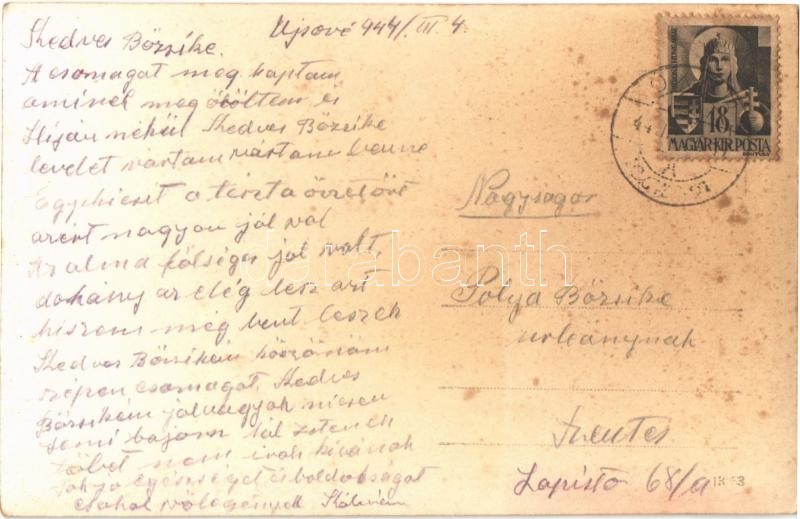 Kedves Bözsike. Ujsové 944/III. 4.
A csomagot meg kaptam
aminek meg öröltem és
Kedves Bözsike
levelet vártam vártam benne
Egy kicset a tészta özetört
azért nagyon jól val
Az alma fölséges jól valt,
dohány az elég lesz azt
hiszem még bent leszek
Kedves Bözsikém köszönöm
szépen csomagot, Kedves
Bözsikém jól vagyok nicsen
semi bajom
többet nem irok kivánok
jo egésséget és boldokságot
csokol völegényed Kálmán
MAGYAR KIR. POSTA
18
Nagyságos
Pólya Bözsike
urleánynak
Szentes
Lapistó 68/a
darabanth